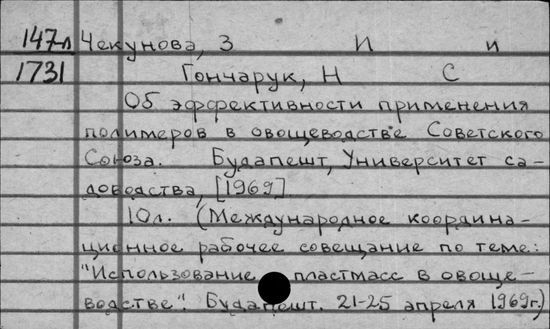 147л Чекунова, З И и
1731 Гончарук, Н С
Об эффективности применения
полимеров в овощеводстве Советского
Союза. Будапешт, Университет са-
доводства, [1969]
10л. (Международное координа-
ционное рабочее совещание по теме:
"Использование пластмасс в овоще-
водстве". Будапешт. 21-25 апреля 1969г.)